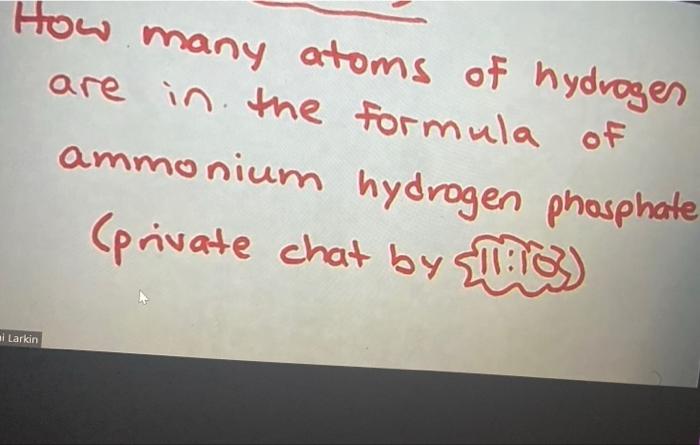 How many atoms of hydrogen
are in the formula of
ammonium hydrogen phosphate
(private chat by 11:10)
i Larkin